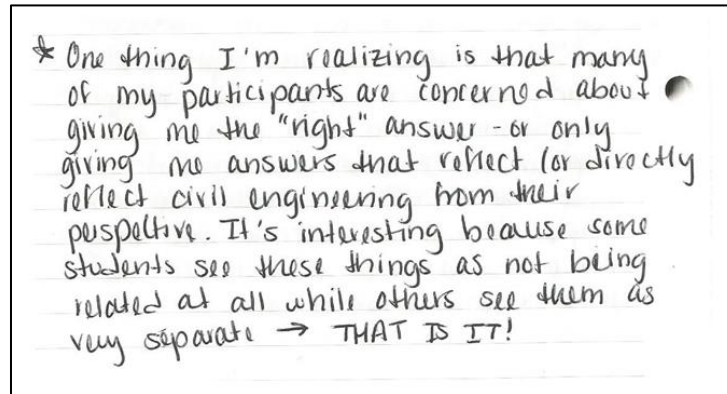 * One thing I'm realizing is that many
of my participants are concerned about
giving me the "right" answer - or only
giving me answers that reflect (or directly
reflect civil engineering from their
perspective. It's interesting because some
students see these things as not being
related at all while others see them as
very separate → THAT IS IT!